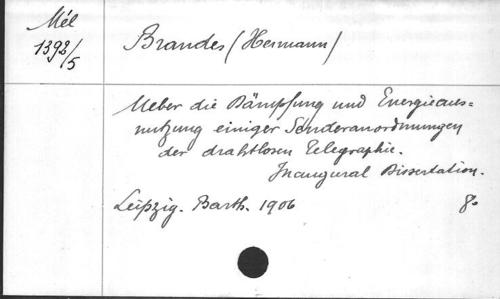 Mél
1392/5
Brandes (Hermann)
Ueber die Dämpfung und Energieaus=
nutzung einiger Senderanordnungen
der drahtlosen Telegraphie.
Inaugural Dissertation.
Leipzig. Barth. 1906 8º